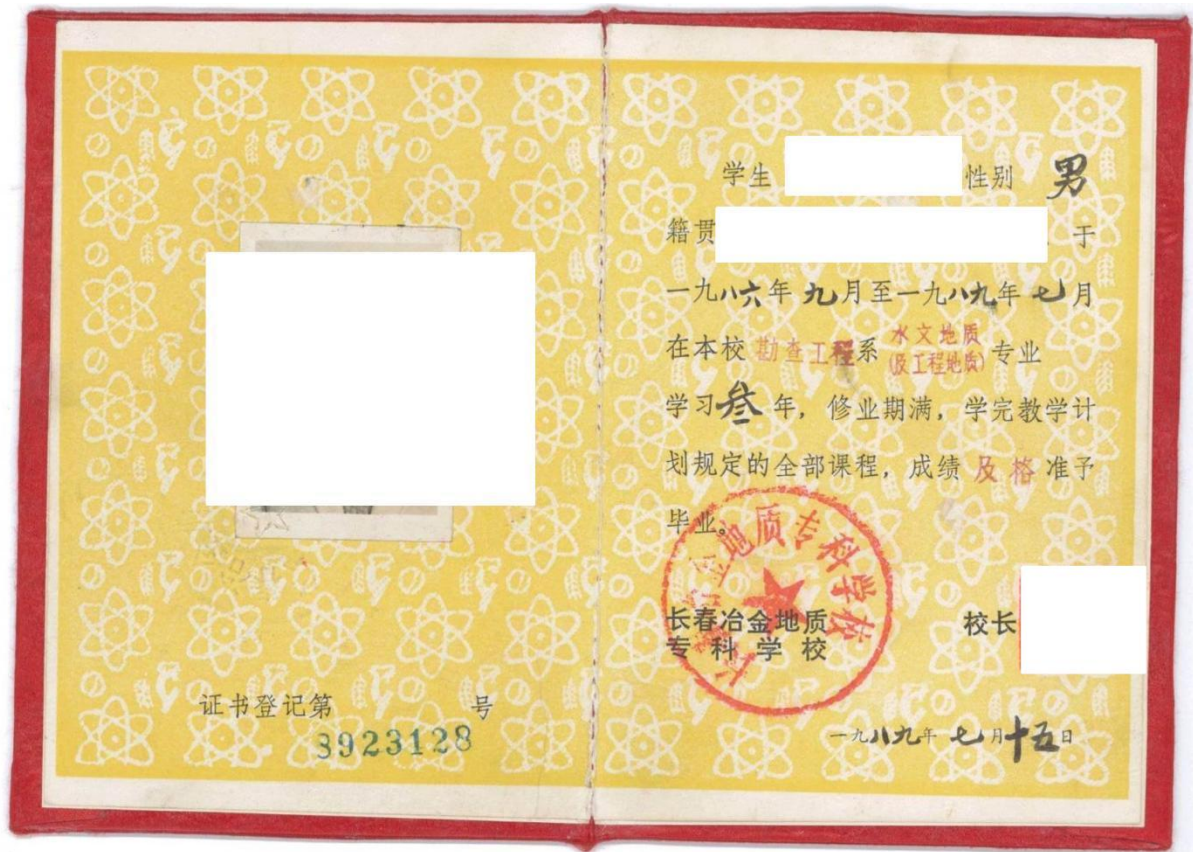 证书登记第 号
8923128
学生 性别 男
籍贯 于
一九八六年九月至一九八九年七月
在本校勘查工程系水文地质(及工程地质)专业
学习叁年，修业期满，学完教学计
划规定的全部课程，成绩及格准予
毕业。
长春冶金地质专科学校
长春冶金地质
专科学校
校长
一九八九年七月十五日